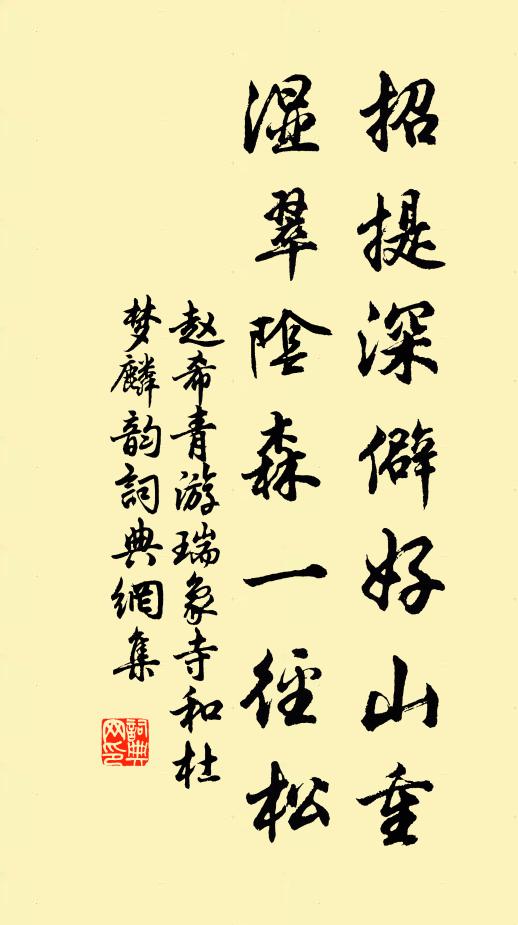 招提深僻好山重
湿翠陰森一徑松
赵希青游瑞象寺和杜
梦麟韵詞典網集
詞典網印